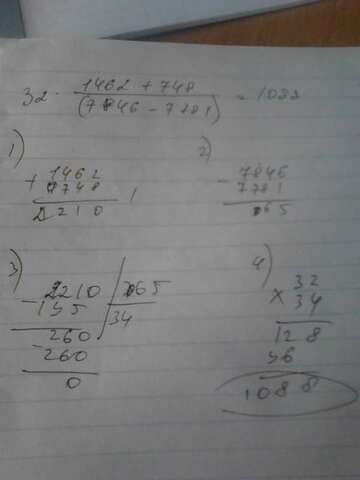 32 · 1462 + 748 / (7846 - 7781) = 1088
1)
+ 1462
748
2210
2)
- 7846
7781
65
3)
- 2210 | 65
195 | 34
- 260
260
0
4)
x 32
34
128
96
1088